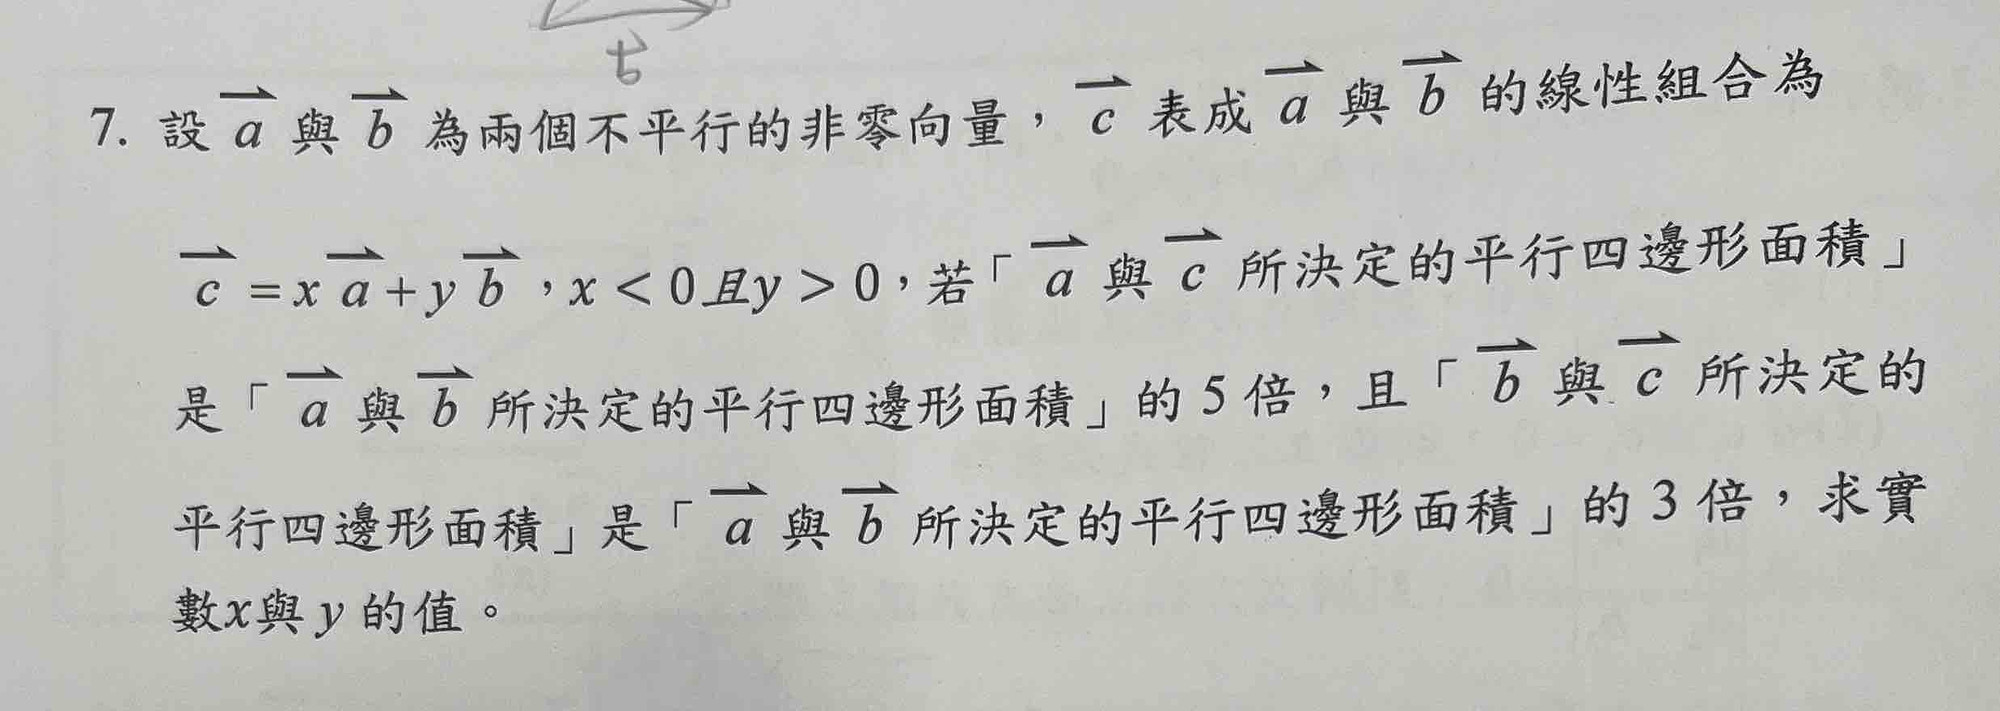 b
7. 設 a 與 b 為兩個不平行的非零向量，c 表成 a 與 b 的線性組合為
c = x a + y b，x < 0且y > 0，若「a 與 c 所決定的平行四邊形面積」
是「a 與 b 所決定的平行四邊形面積」的 5 倍，且「b 與 c 所決定的
平行四邊形面積」是「a 與 b 所決定的平行四邊形面積」的 3 倍，求實
數x與 y 的值。